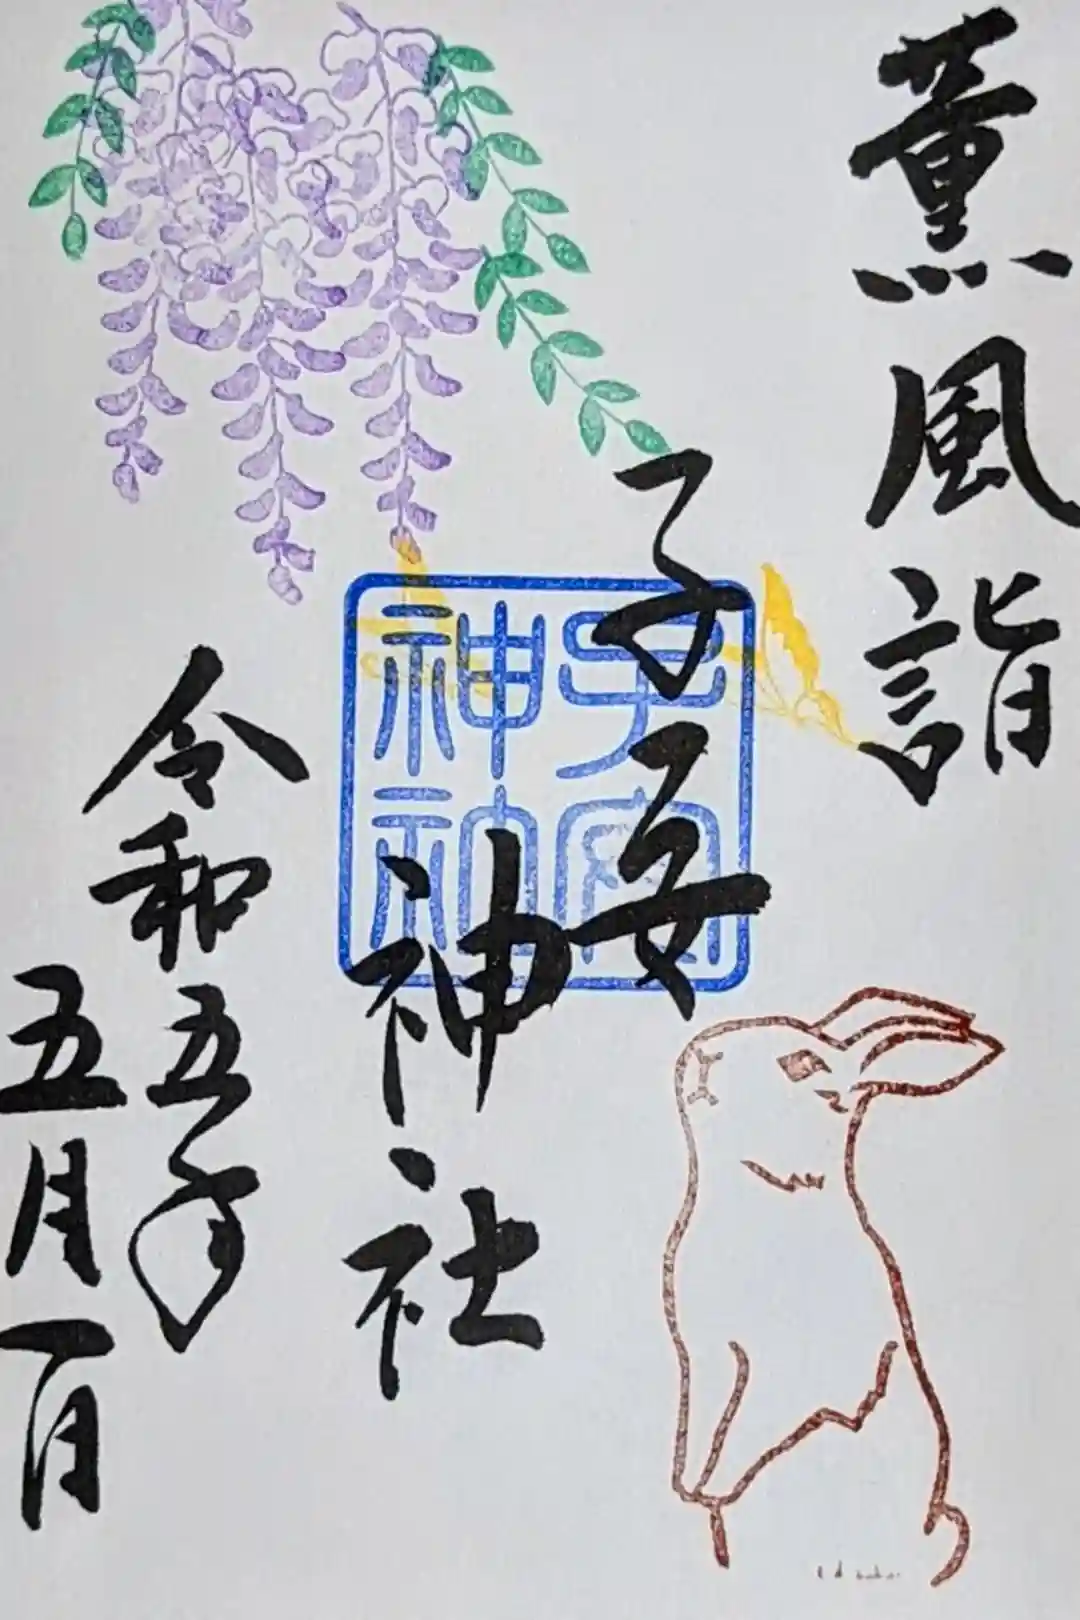 薫風詣
子安神社
子安
神社
令和五年
五月一日